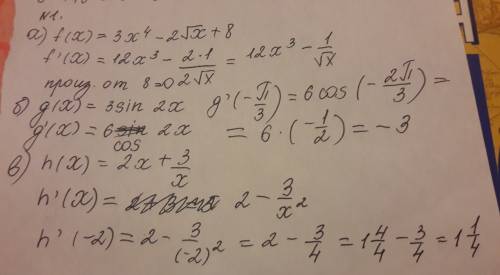 N1.
а) f(x) = 3x⁴ - 2√x + 8
f'(x) = 12x³ - 2·1/2√x = 12x³ - 1/√x
произ. от 8=0
б) g(x) = 3sin 2x g'(-π/3) = 6cos(-2π/3) =
g'(x) = 6 cos 2x = 6·(-1/2) = -3
в) h(x) = 2x + 3/x
h'(x) = 2 - 3/x²
h'(-2) = 2 - 3/(-2)² = 2 - 3/4 = 1 4/4 - 3/4 = 1 1/4